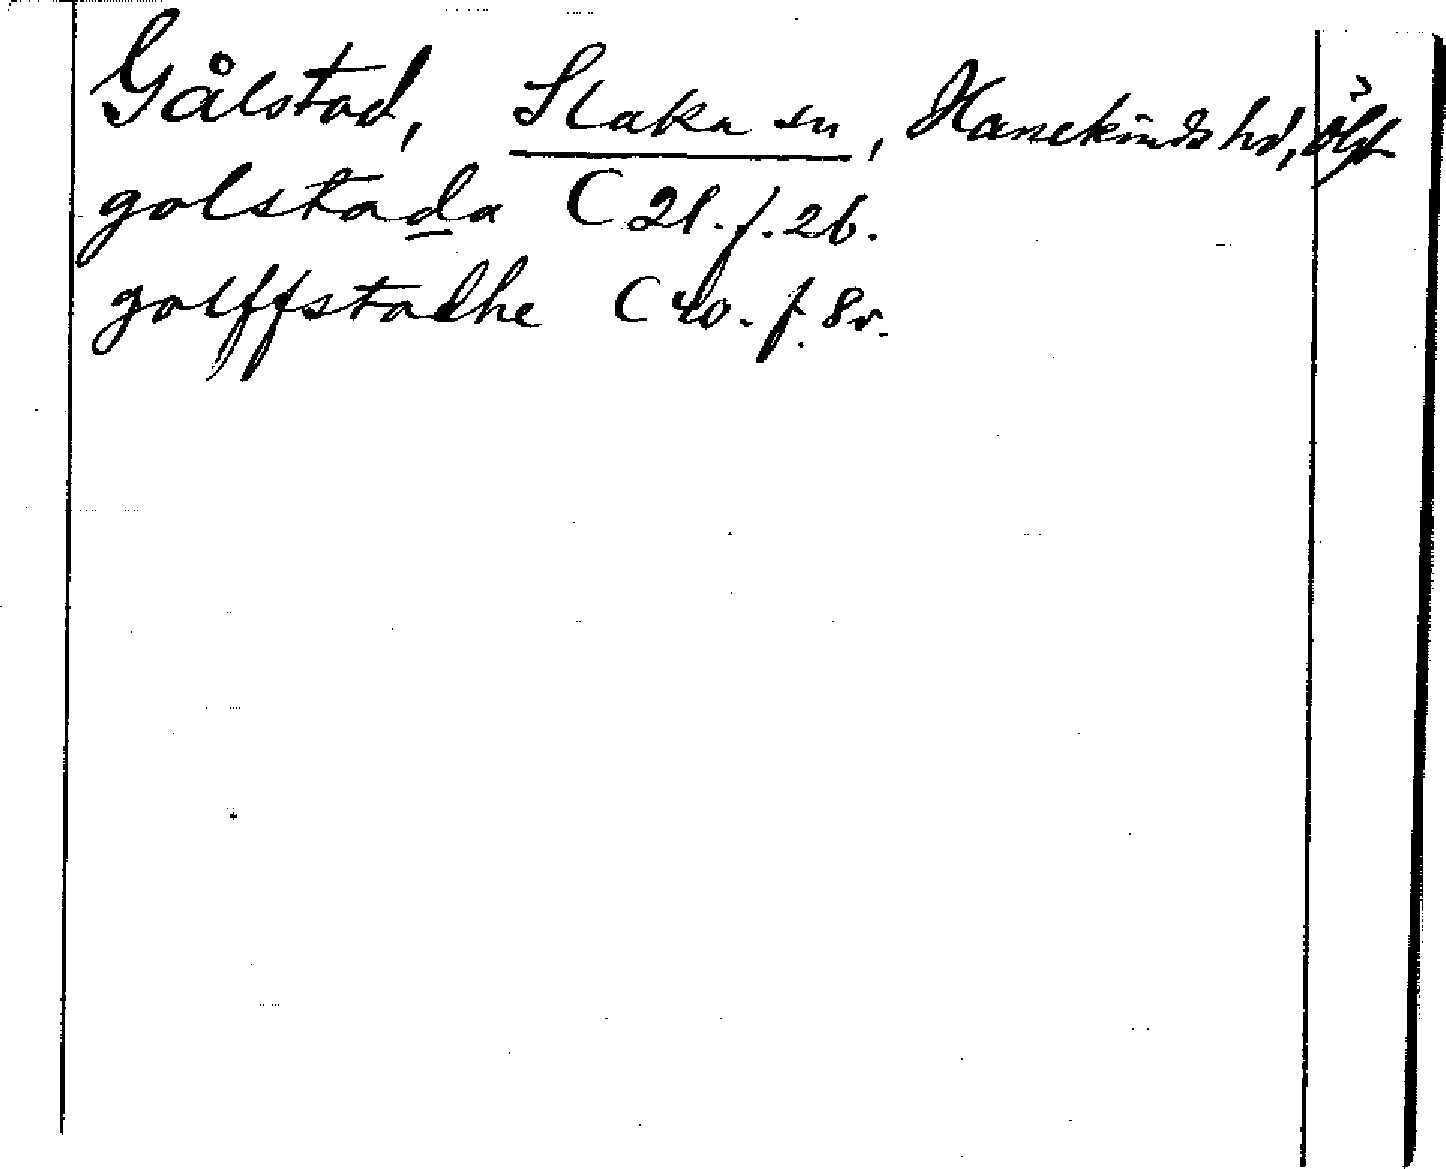 Gålstad, Slaka sn, Hanekinds hd, Ögt
golstada C 21. f. 26.
golffstadhe C 40. f. 8v.